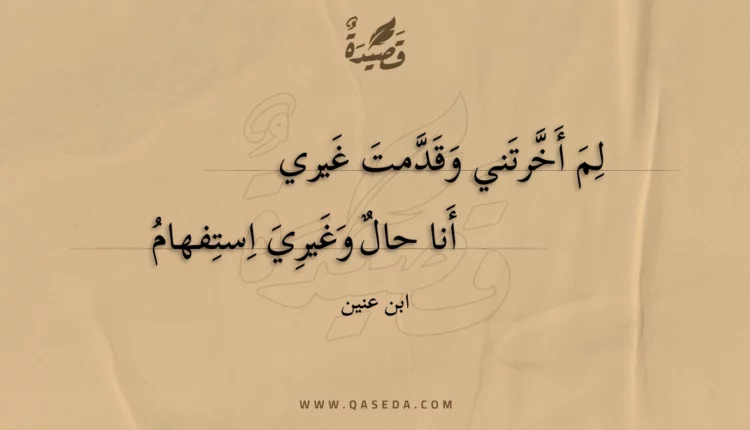 قَصِيدَةٌ
لِمَ أَخَّرتَني وَقَدَّمتَ غَيري
أَنا حالٌ وَغَيرِيَ اِستِفهامُ
ابن عنين
WWW.QASEDA.COM